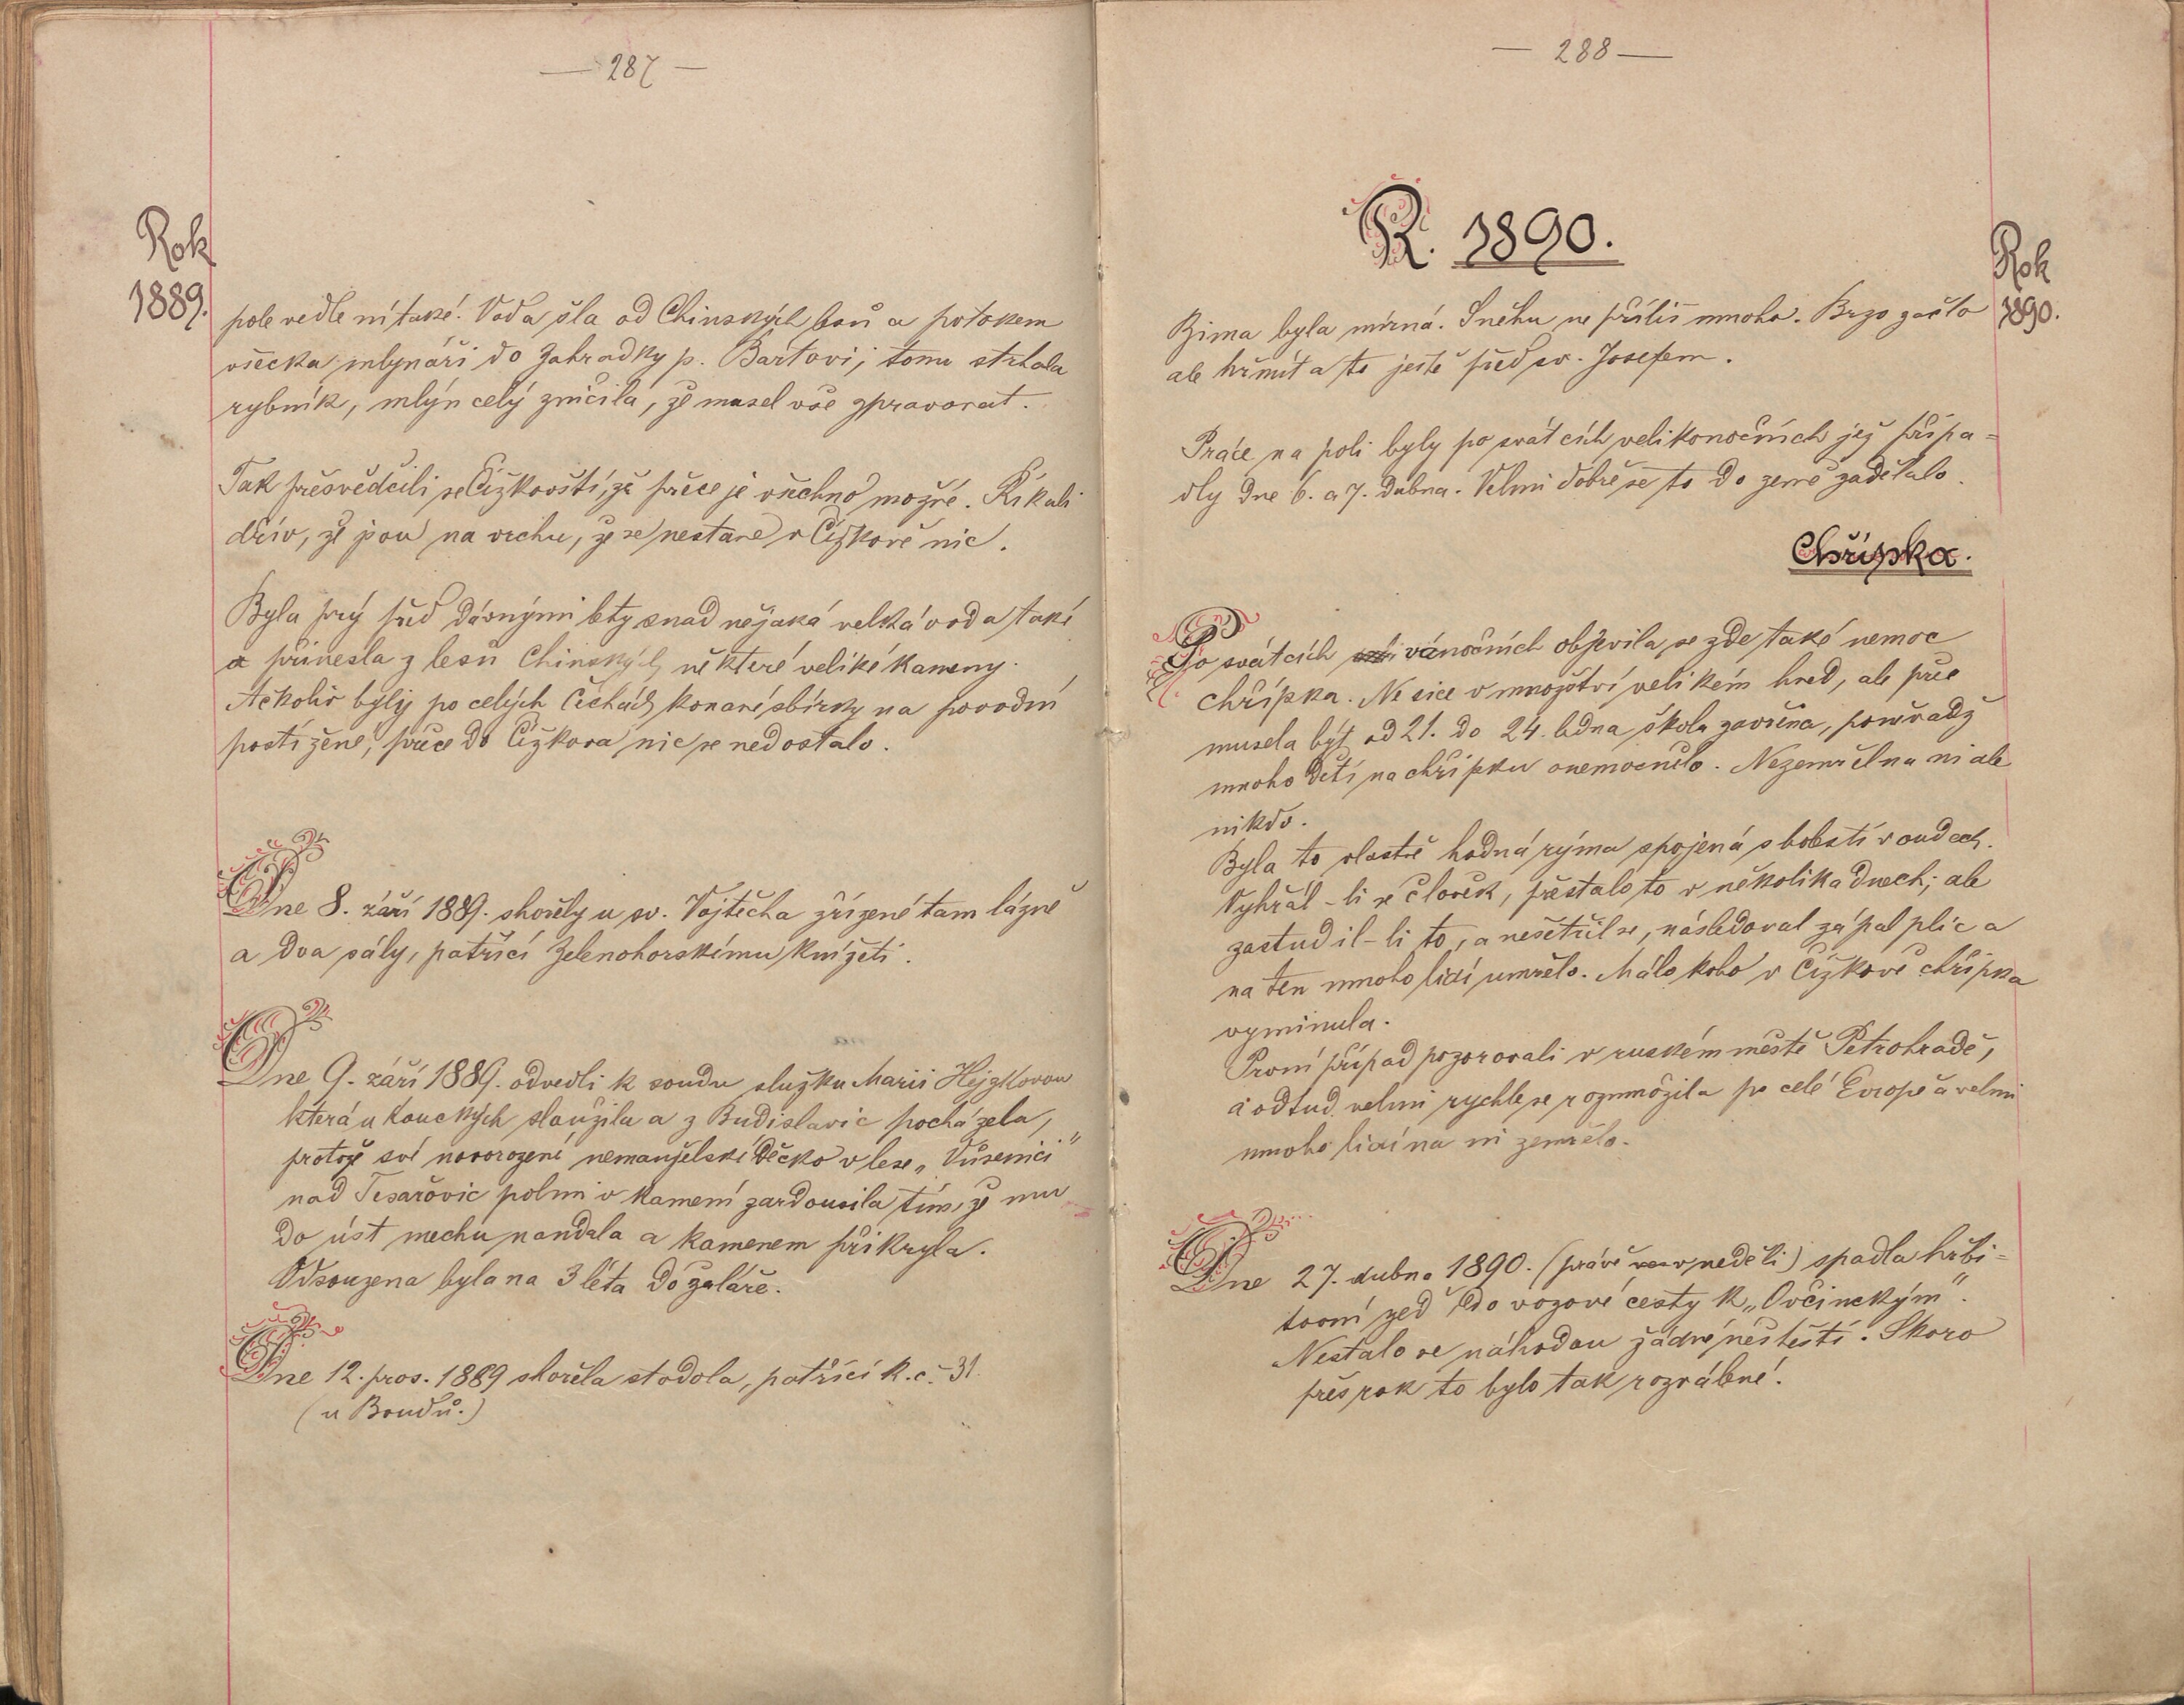 — 287 —
Rok
1889.
pole vedle ní také. Voda šla od Chinských lesů a potokem
všecka mlynáři do Zahradky p. Bartovi; tomu strhala
rybník, mlýn celý zničila, že musel vše zpravovat.
Tak přesvědčili se Čížkovští, že přece je všechno možné. Říkali
dřív, že jsou na vrchu, že se nestane v Čížkově nic.
Byla prý před dávnými lety snad nějaká velká voda také
a přinesla z lesů Chinských některé veliké kameny.
Ačkoliv byly po celých Čechách konané sbírky na povodní
postižené, přece do Čížkova nic se nedostalo.
Dne 8. září 1889. shořely u sv. Vojtěcha zřízené tam lázně
a dva sály, patřící Zelenohorskému knížeti.
Dne 9. září 1889. odvedli k soudu služku Marii Hejzkovou
která u Kouckých sloužila a z Budislavic pocházela,
protože své novorozené nemanželské děcko v lese „Vůsenici"
nad Tesařovic polmi v kamení zardousila tím, že mu
do úst mechu nandala a kamenem přikryla.
Odsouzena byla na 3 léta do žaláře.
Dne 12. pros. 1889 shořela stodola, patřící k. č. 31.
(u Boudů.)
— 288 —
R. 1890.
Rok
1890.
Zima byla mírná. Sněhu ne příliš mnoho. Brzo začlo
ale hřmít a to ještě před sv. Josefem.
Práce na poli byly po svátcích velikonočních jež připa=
dly dne 6. a 7. dubna. Velmi dobře se to do země zadělalo.
Chřipka.
Po svátcích vánočních objevila se zde také nemoc
chřipka. Ne sice v množství velikém hned, ale přec
musela být od 21. do 24. ledna škola zavřena, poněvadž
mnoho dětí na chřipku onemocnělo. Nezemřel na ni ale
nikdo.
Byla to vlastně hodná rýma spojená s bolestí v oudech.
Vyhřál-li se člověk, přestalo to v několika dnech; ale
zastudil-li to, a nešetřil se, následoval zápal plic a
na ten mnoho lidí umřelo. Málo koho v Čížkově chřipka
vyminula.
První případ pozorovali v ruském městě Petrohradě,
a odtud velmi rychle se rozmnožila po celé Evropě a velmi
mnoho lidí na ni zemřelo.
Dne 27. dubna 1890. (právě v neděli) spadla hřbi=
tovní zeď do vozové cesty k „Ovčinckým".
Nestalo se náhodou žádné neštěstí. Skoro
přes rok to bylo tak rozválené.